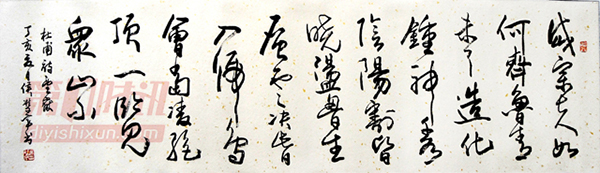 岱宗夫如
何齊魯青
未了造化
鍾神秀
陰陽割昏
曉盪胷生
層雲決眥
入歸鳥
會當凌絕
頂一覽
衆山小
杜甫詩望嶽
丁亥夏月
第一时讯
diyishixun.com